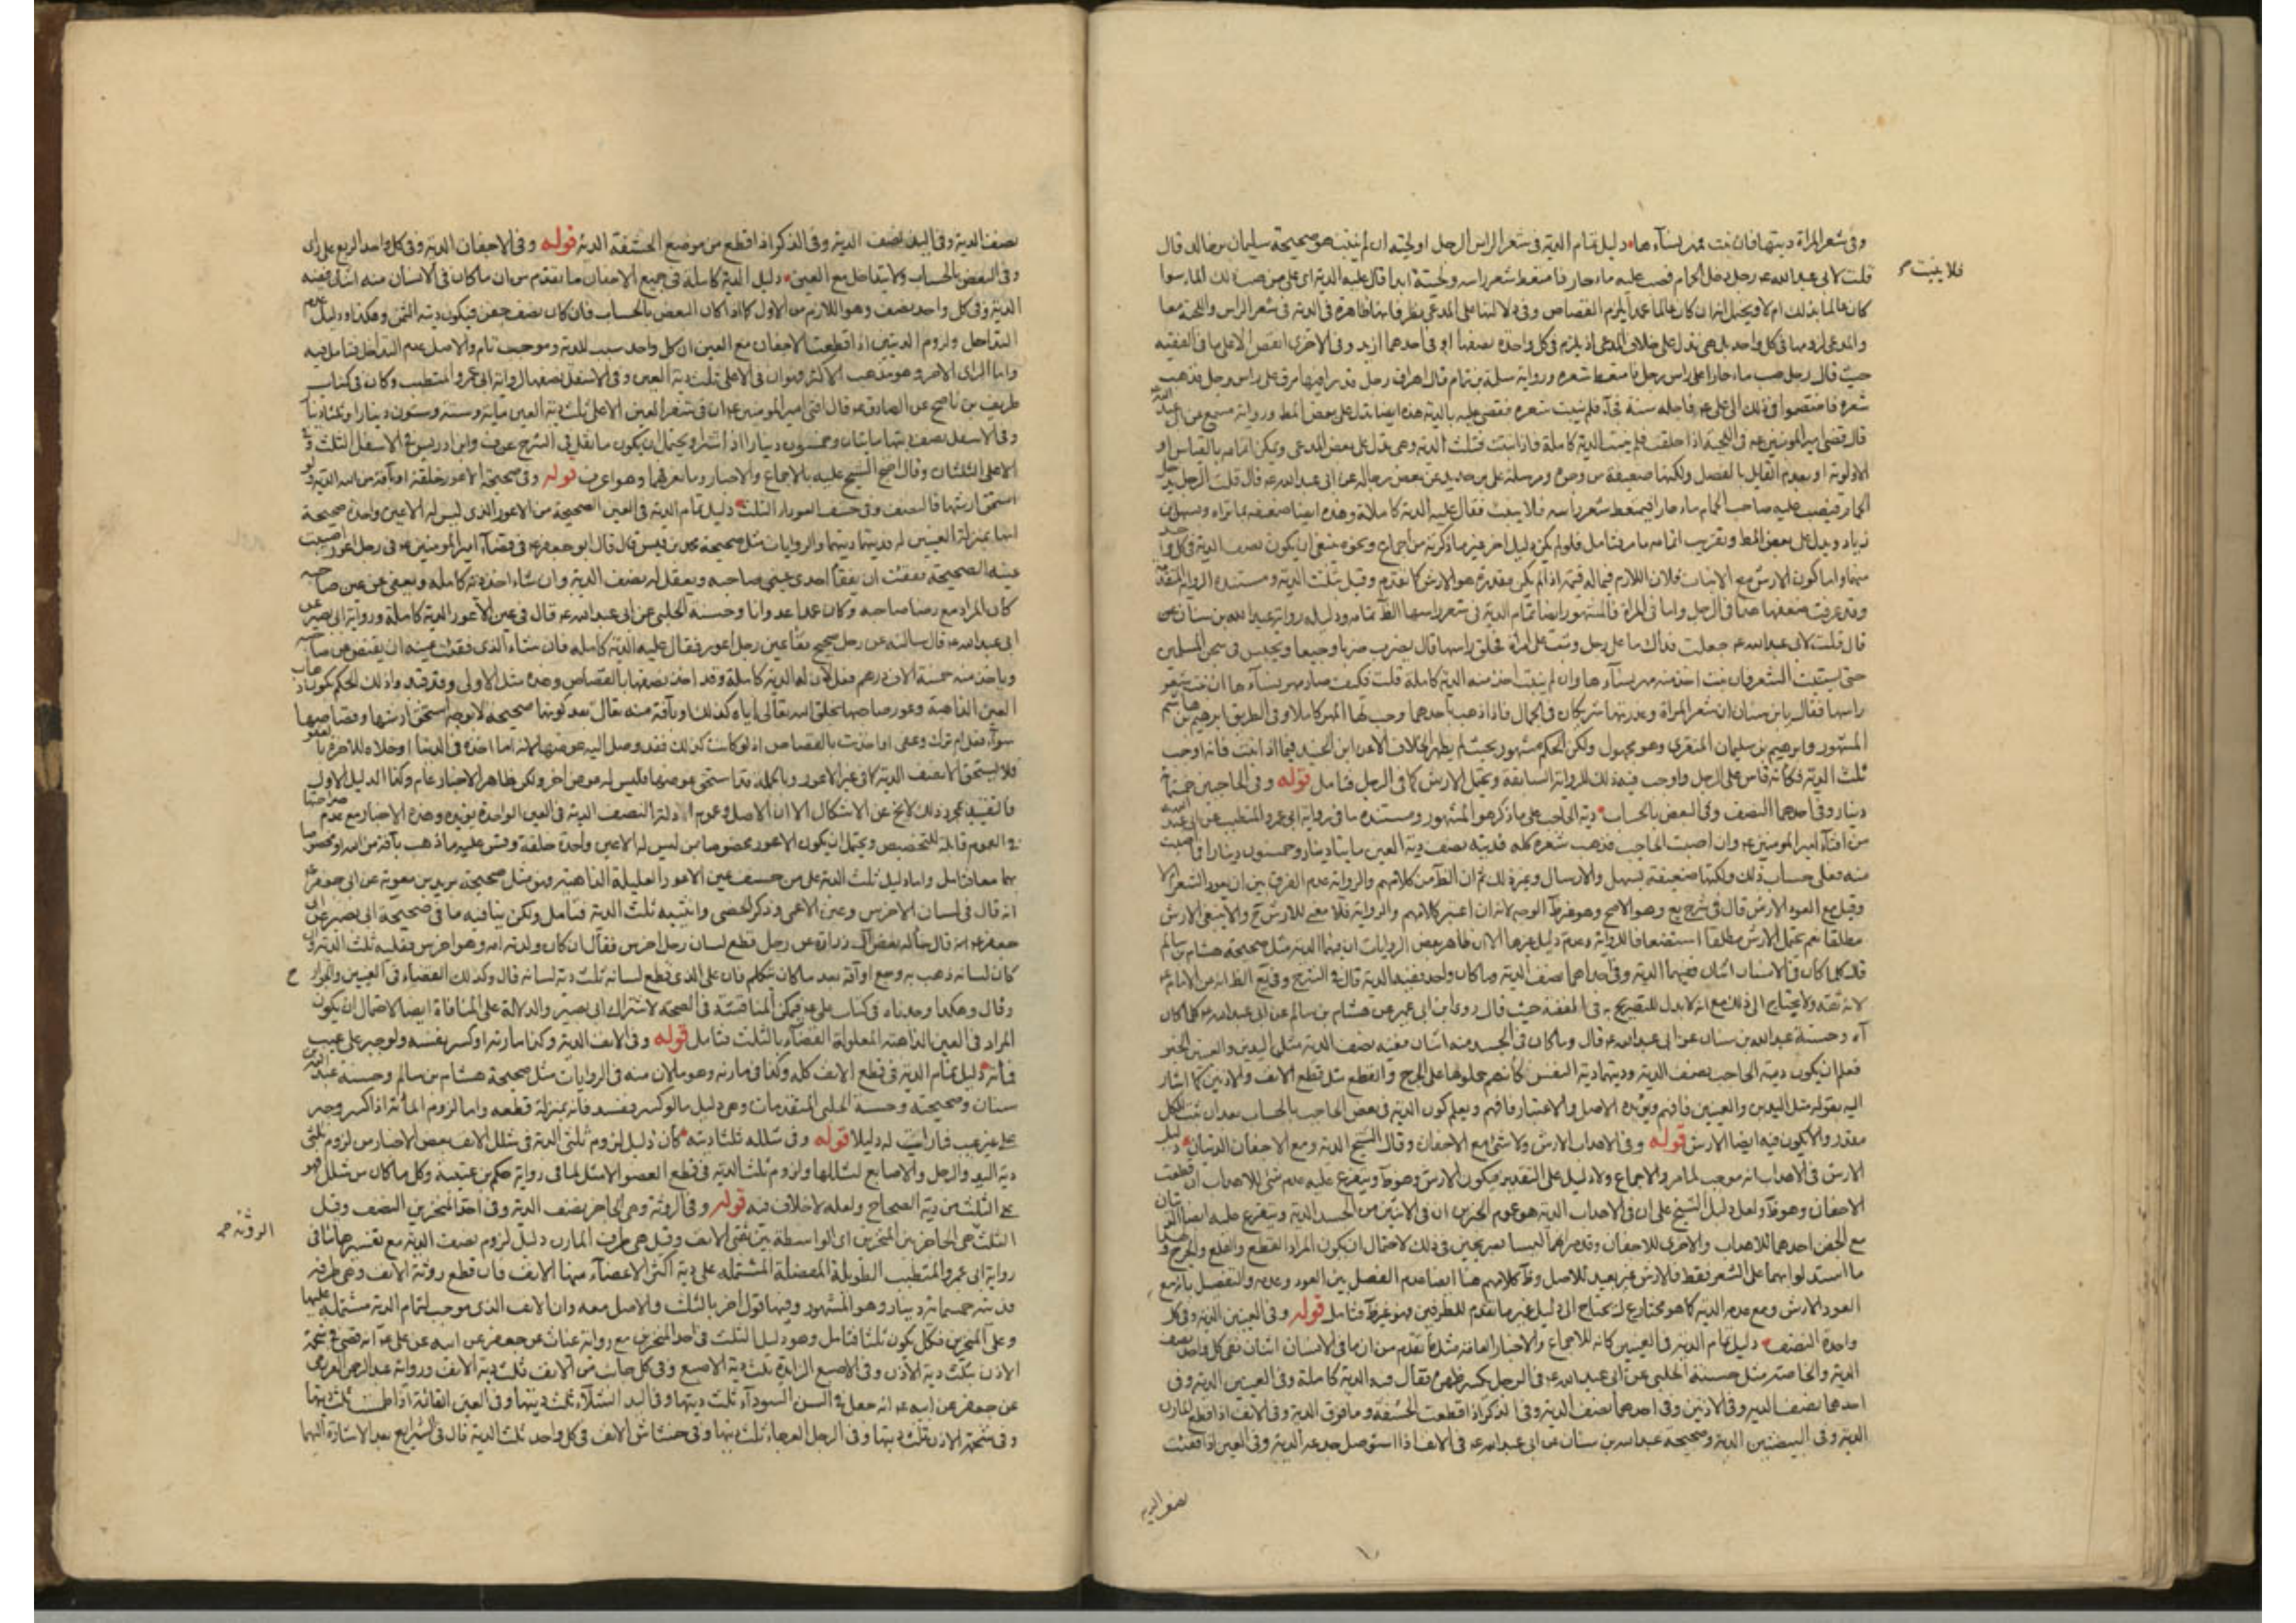 وفي شعر المراة ديتها فان نبت مهر نسآءها دليل تمام الدية في شعر الراس الرجل او لحيته ان لم ينبت هو صحيحة سليمان بن خالد قال
فلا ينبت
قلت لابي عبد الله ع رجل دخل الحمام فصب عليه ماء حار فامتعط شعر راسه ولحيته ابدا قال عليه الدية اي على من صب ذلك الماء سوا
كان عالما بذلك ام لا ويحتمل انه ان كان عالما عمدا يلزم القصاص وفي دلالتها على المدعى نظر فانها ظاهرة في الدية في شعر الراس واللحية معا
والمدعى لزومها في كل واحد بل هي تدل على خلاف المدعى اذ يلزم في كل واحدة نصفها او في احدهما ازيد وفي الاخرى انقص الا على ما في الفقيه
حيث قال رجل صب ماء حارا على راس رجل فامتعط شعره ورواية سلمة بن تمام قال اهراق رجل قدرا فيها مرق على راس رجل فذهب
شعره فاختصموا في ذلك الى علي ع فاجله سنة فجآء فلم ينبت شعره فقضى عليه بالدية هذه ايضا تدل على بعض المط ورواية مسمع عن ابي عبد الله
قال قضى امير المومنين ع في اللحية اذا حلقت فلم ينبت الدية كاملة فاذا نبتت فثلث الدية وهي تدل على بعض المدعى ويمكن اتمامه بالقياس او
الاولوية او بعدم القايل بالفصل ولكنها ضعيفة من وجوه ومرسلة علي بن حديد عن بعض رجاله عن ابي عبد الله ع قال قلت الرجل يدخل
الحمام فيصب عليه صاحب الحمام ماء حار فيمتعط شعر راسه فلا ينبت فقال عليه الدية كاملة وهذه ايضا ضعيفة بما تراه وسهل بن
زياد ويدل على بعض المط وتقريب اتمامه ما مر فتامل فلو لم يكن دليل اخر غير ما ذكرته من اجماع ونحوه ينبغي ان يكون نصف الدية في كل واحد
منها واما كون الارش مع الانبات فلان اللازم فيما له قيمة اذا لم يكن مقدره هو الارش كما تقدم وقيل ثلث الدية ومستنده الرواية المتقدمة
وقد عرفت ضعفها هذا في الرجل واما في المراة فالمشهور ايضا تمام الدية في شعر راسها الظ تمامه ودليله رواية عبد الله بن سنان
قال قلت لابي عبد الله ع جعلت فداك ما على رجل وثب على امراة فحلق راسها قال يضرب ضربا وجيعا ويحبس في سجن المسلمين
حتى يستنبت الشعر فان نبت اخذ منه مهر نسآءها وان لم ينبت اخذ منه الدية كاملة قلت فكيف صار مهر نسآءها ان نبت شعر
راسها فقال يا بن سنان ان شعر المراة وعذرتها شريكان في الجمال فاذا ذهب باحدهما وجب لها المهر كاملا وفي الطريق ابرهيم بن هاشم
المشهور وابرهيم بن سليمان المنقري وهو مجهول ولكن الحكم مشهور بحيث لم يظهر الخلاف الا عن ابن الجنيد فيما اذا نبت فانه اوجب
ثلث الدية فكانه قاس على الرجل واوجب فيه ذلك للرواية السابقة ويحتمل الارش كما في الرجل فتامل قوله وفي الحاجبين خمسماة
دينار وفي احدهما النصف وفي البعض بالحساب دية الحاجب على ما ذكر هو المشهور ومستنده ما في رواية ابي عمرو المتطبب عن ابي عبد الله
من افتاء امير المومنين ع وان اصيب الحاجب فذهب شعره كله فديته نصف دية العين مايتا دينار وخمسون دينارا فما اصيب
منه فعلى حساب ذلك ولكنها ضعيفة بسهل والارسال وغيره ذلك ثم ان الظ من كلامهم والرواية عدم الفرق بين ان يعود الشعر ام لا
وقيل مع العود الارش قال في شرح يع وهو الاصح وهو غير ظ الوجه لانه ان اعتبر كلامهم والرواية فلا معنى للارش ح والا ينبغي الارش
مطلقا نعم يحتمل الارش مطلقا استضعافا للرواية وعدم دليل غيرها الا ان ظاهر بعض الروايات ان فيهما الدية مثل صحيحة هشام بن سالم
قال كلما كان في الانسان اثنان ففيهما الدية وفي احداهما نصف الدية وما كان واحد ففيه الدية قال في الشرح وفي يع الظ انه عن الامام ع
لانه ثقة ولا يحتاج الى ذلك مع انه لا بدل للتصريح به في الفقيه حيث قال روى ابن ابي عمير عن هشام بن سالم عن ابي عبد الله ع كلما كان
آه وحسنة عبد الله بن سنان عن ابي عبد الله ع قال وما كان في الجسد منه اثنان ففيه نصف الدية مثل اليدين والعينين الخبر
فعلم ان يكون دية الحاجب نصف الدية وديتهما دية النفس كانهم حملوها على الجرح والقطع مثل قطع الانف والاذنين كما اشار
اليه بقوله مثل اليدين والعينين فافهم ويؤيده الاصل والاعتبار فافهم ويعلم كون الدية في بعض الحاجب بالحساب بعد ان ثبت للكل
مقدر والا يكون فيه ايضا الارش قوله وفي الاهداب الارش ولا شئ مع الاجفان وقال الشيخ الدية ومع الاجفان الديتان دليل
الارش في الاهداب انه موجب لما مر والاجماع ولا دليل على التقدير فيكون الارش وهو ظ ويتفرع عليه عدم شئ للاهداب ان قطعت
الاجفان وهو ظ ولعل دليل الشيخ على ان في الاهداب الدية هو عموم الخبرين ان في الاثنين من الجسد الدية ويتفرع عليه ايضا الديتان
مع الجفن احدهما للاهداب والاخرى للاجفان وقد مر انهما ليسا بصريحين في ذلك لاحتمال ان يكون المراد القطع والقلع والجرح
ما استدلوا بهما على الشعر فقط فالارش غير بعيد للاصل وظ كلامهم هنا ايضا عدم الفصل بين العود وعدمه والتفصيل بان مع
العود الارش ومع عدمه الدية كما هو مختار يع يحتاج الى دليل غير ما تقدم للطرفين فهو غير ظ فتامل قوله وفي العينين الدية وفي كل
واحدة النصف دليل تمام الدية في العينين كانه للاجماع والاخبار العامة مثل ما تقدم من ان ما في الانسان اثنان ففي كل واحد نصف
الدية والخاصة مثل حسنة الحلبي عن ابي عبد الله ع في الرجل يكسر ظهره فقال فيه الدية كاملة وفي العينين الدية وفي
احدهما نصف الدية وفي الاذنين وفي احدهما نصف الدية وفي الذكر اذا قطعت الحشفة وما فوق الدية وفي الانف اذا قطع المارن
الدية وفي البيضتين الدية وصحيحة عبد الله بن سنان عن ابي عبد الله ع في الانف اذا استوصل جدعه الدية وفي العين اذا فقئت
نصف الدية
نصف الدية وفي اليد نصف الدية وفي الذكر اذا قطع من موضع الحشفة الدية قوله وفي الاجفان الدية وفي كل واحد الربع على راى
وفي البعض بالحساب ولا يتداخل مع العين دليل الدية كاملة في جميع الاجفان ما تقدم من ان ما كان في الانسان منه اثنان ففيه
الدية وفي كل واحد نصف وهو اللازم من الاول كما اذا كان البعض بالحساب فان كان نصف جفن فيكون ديته الثمن وهكذا ودليل عدم
التداخل ولزوم الديتين اذا قطعت الاجفان مع العين ان كل واحد سبب للدية وموجب تام والاصل عدم التداخل فتامل فيه
واما الراى الاخر وهو مذهب الاكثر فهو ان في الاعلى ثلث دية العين وفي الاسفل نصفها لرواية ابي عمرو المتطبب وكان في كتاب
ظريف بن ناصح عن الصادق ع قال افتى امير المومنين ع ان في شفر العين الاعلى ثلث دية العين مايه وستة وستون دينارا وثلثا دينار
وفي الاسفل نصف ديتها مايتان وخمسون دينارا اذا شتر ويحتمل ان يكون ما نقل في الشرح عن ف وابن ادريس في الاسفل الثلث وفي
الاعلى الثلثان وقال احتج الشيخ عليه بالاجماع والاخبار وما نعرفهما وهو اعرف قوله وفي صحيحة الاعور خلقة او بآفة من الله الدية ولو
استحق ارشها فالنصف وفي خسف العوراء الثلث دليل تمام الدية في العين الصحيحة من الاعور الذي ليس له الا عين واحدة صحيحة
انها بمنزلة العينين له فديتها ديتهما والروايات مثل صحيحة محمد بن قيس قال قال ابو جعفر ع في قضآء امير المومنين ع في رجل اعور اصيبت
عينه الصحيحة ففقئت ان يفقأ احدى عيني صاحبه ويعقل له نصف الدية وان شاء اخذ دية كاملة ويعفى عن عين صاحبه
كان المراد مع رضا صاحبه وكان عمدا عدوانا وحسنة الحلبي عن ابي عبد الله ع قال في عين الاعور الدية كاملة ورواية ابي بصير عن
ابي عبد الله ع قال سالته عن رجل صحيح فقأ عين رجل اعور فقال عليه الدية كاملة فان شاء الذي فقئت عينه ان يقتص من صاحبه
وياخذ منه خمسة الاف درهم فعل لان له الدية كاملة وقد اخذ نصفها بالقصاص وهذه مثل الاولى
العين الذاهبة وعور صاحبها بخلق الله تعالى اياه كذلك او بآفة منه تعالى بعد كونها صحيحة لا بوجه استحق ارشها وقصاصها
فلا يستحق الا نصف الدية كما في غير الاعور وبالجملة فما استحق عوضها فليس له عوض اخر ولكن ظاهر الاخبار عام وكذا الدليل الاول
فالتقييد بمجرد ذلك لا يخ عن الاشكال الا ان الاصل وعموم ادلة النصف الدية في العين الواحدة يؤيده وهذه الاخبار مع عدم صراحتها
في العموم قابلة للتخصيص ويحتمل ان يكون الاعور مخصوصا بمن ليس له الا عين واحدة خلقة وقس عليه ما ذهب بآفة من الله او مخصوصا
بهما معا فتامل واما دليل ثلث الدية على من خسف عين الاعور العليلة الذاهبة فهو مثل صحيحة بريد بن معوية عن ابي جعفر ع
انه قال في لسان الاخرس وعين الاعمى وذكر الخصي وانثييه ثلث الدية فتامل ولكن ينافيه ما في صحيحة ابي بصير عن ابي
جعفر ع انه قال سأله بعض آل زرارة عن رجل قطع لسان رجل اخرس فقال ان كان ولدته امه وهو اخرس فعليه ثلث الدية وان
كان لسانه ذهب به وجع او آفة بعد ما كان يتكلم فان على الذي قطع لسانه ثلث دية لسانه قال وكذلك القضاء في العينين والجوارح
وقال وهكذا وجدناه في كتاب علي ع فيمكن المناقشة في الصحة لاشتراك ابي بصير والدلالة على المنافاة ايضا لاحتمال ان يكون
المراد في العين الذاهبة المعلولة القضآء بالثلث فتامل قوله وفي الانف الدية وكذا مارنه او كسر ففسد ولو جبر على غير عيب
فمأة دليل تمام الدية في قطع الانف كله وكذا في مارنه وهو مالان منه في الروايات مثل صحيحة هشام بن سالم وحسنة عبد الله بن
سنان وصحيحته وحسنة الحلبي المتقدمات وهي دليل ما لو كسر ففسد فانه بمنزلة قطعه واما لزوم المأة اذا كسر وجبر
على غير عيب فما رايت له دليلا قوله وفي شلله ثلثا ديته كان دليل لزوم ثلثي الدية في شلل الانف بعض الاخبار من لزوم ثلثي
دية اليد والرجل والاصابع لشللها ولزوم ثلث الدية في قطع العضو الاشل لما في رواية حكم بن عتيبة وكل ما كان من شلل فهو
على الثلث من دية الصحاح ولعله لا خلاف فيه قوله وفي الروثة وهي الحاجز نصف الدية وفي احد المنخرين النصف وقيل
الروثة
الثلث هي الحاجز بين المنخرين اى الواسطة بين ثقبي الانف وقيل هي طرف المارن دليل لزوم نصف الدية مع تفسيرها ما في
رواية ابي عمرو المتطبب الطويلة المفصلة المشتملة على دية اكثر الاعضآء منها الانف فان قطع روثة الانف وهي طرفه
فديته خمسماة دينار وهو المشهور وفيها قول اخر بالثلث والاصل معه وان الانف الذي موجب لتمام الدية مشتملة عليها
وعلى المنخرين فكل يكون ثلثا فتامل وهو دليل الثلث في احد المنخرين مع رواية غياث عن جعفر عن ابيه عن علي ع انه قضى في شحمة
الاذن بثلث دية الاذن وفي الاصبع الزايدة ثلث دية الاصبع وفي كل جانب من الانف ثلث دية الانف ورواية عبد الرحمن العرزمي
عن جعفر عن ابيه ع انه جعل في السن السودآء ثلث ديتها وفي اليد الشلآء ثلث ديتها وفي العين القائمة اذا طمست ثلث ديتها
وفي شحمة الاذن ثلث ديتها وفي الرجل العرجاء ثلث ديتها وفي خشاش الانف في كل واحد ثلث الدية قال في الشرايع بعد الاشارة اليهما